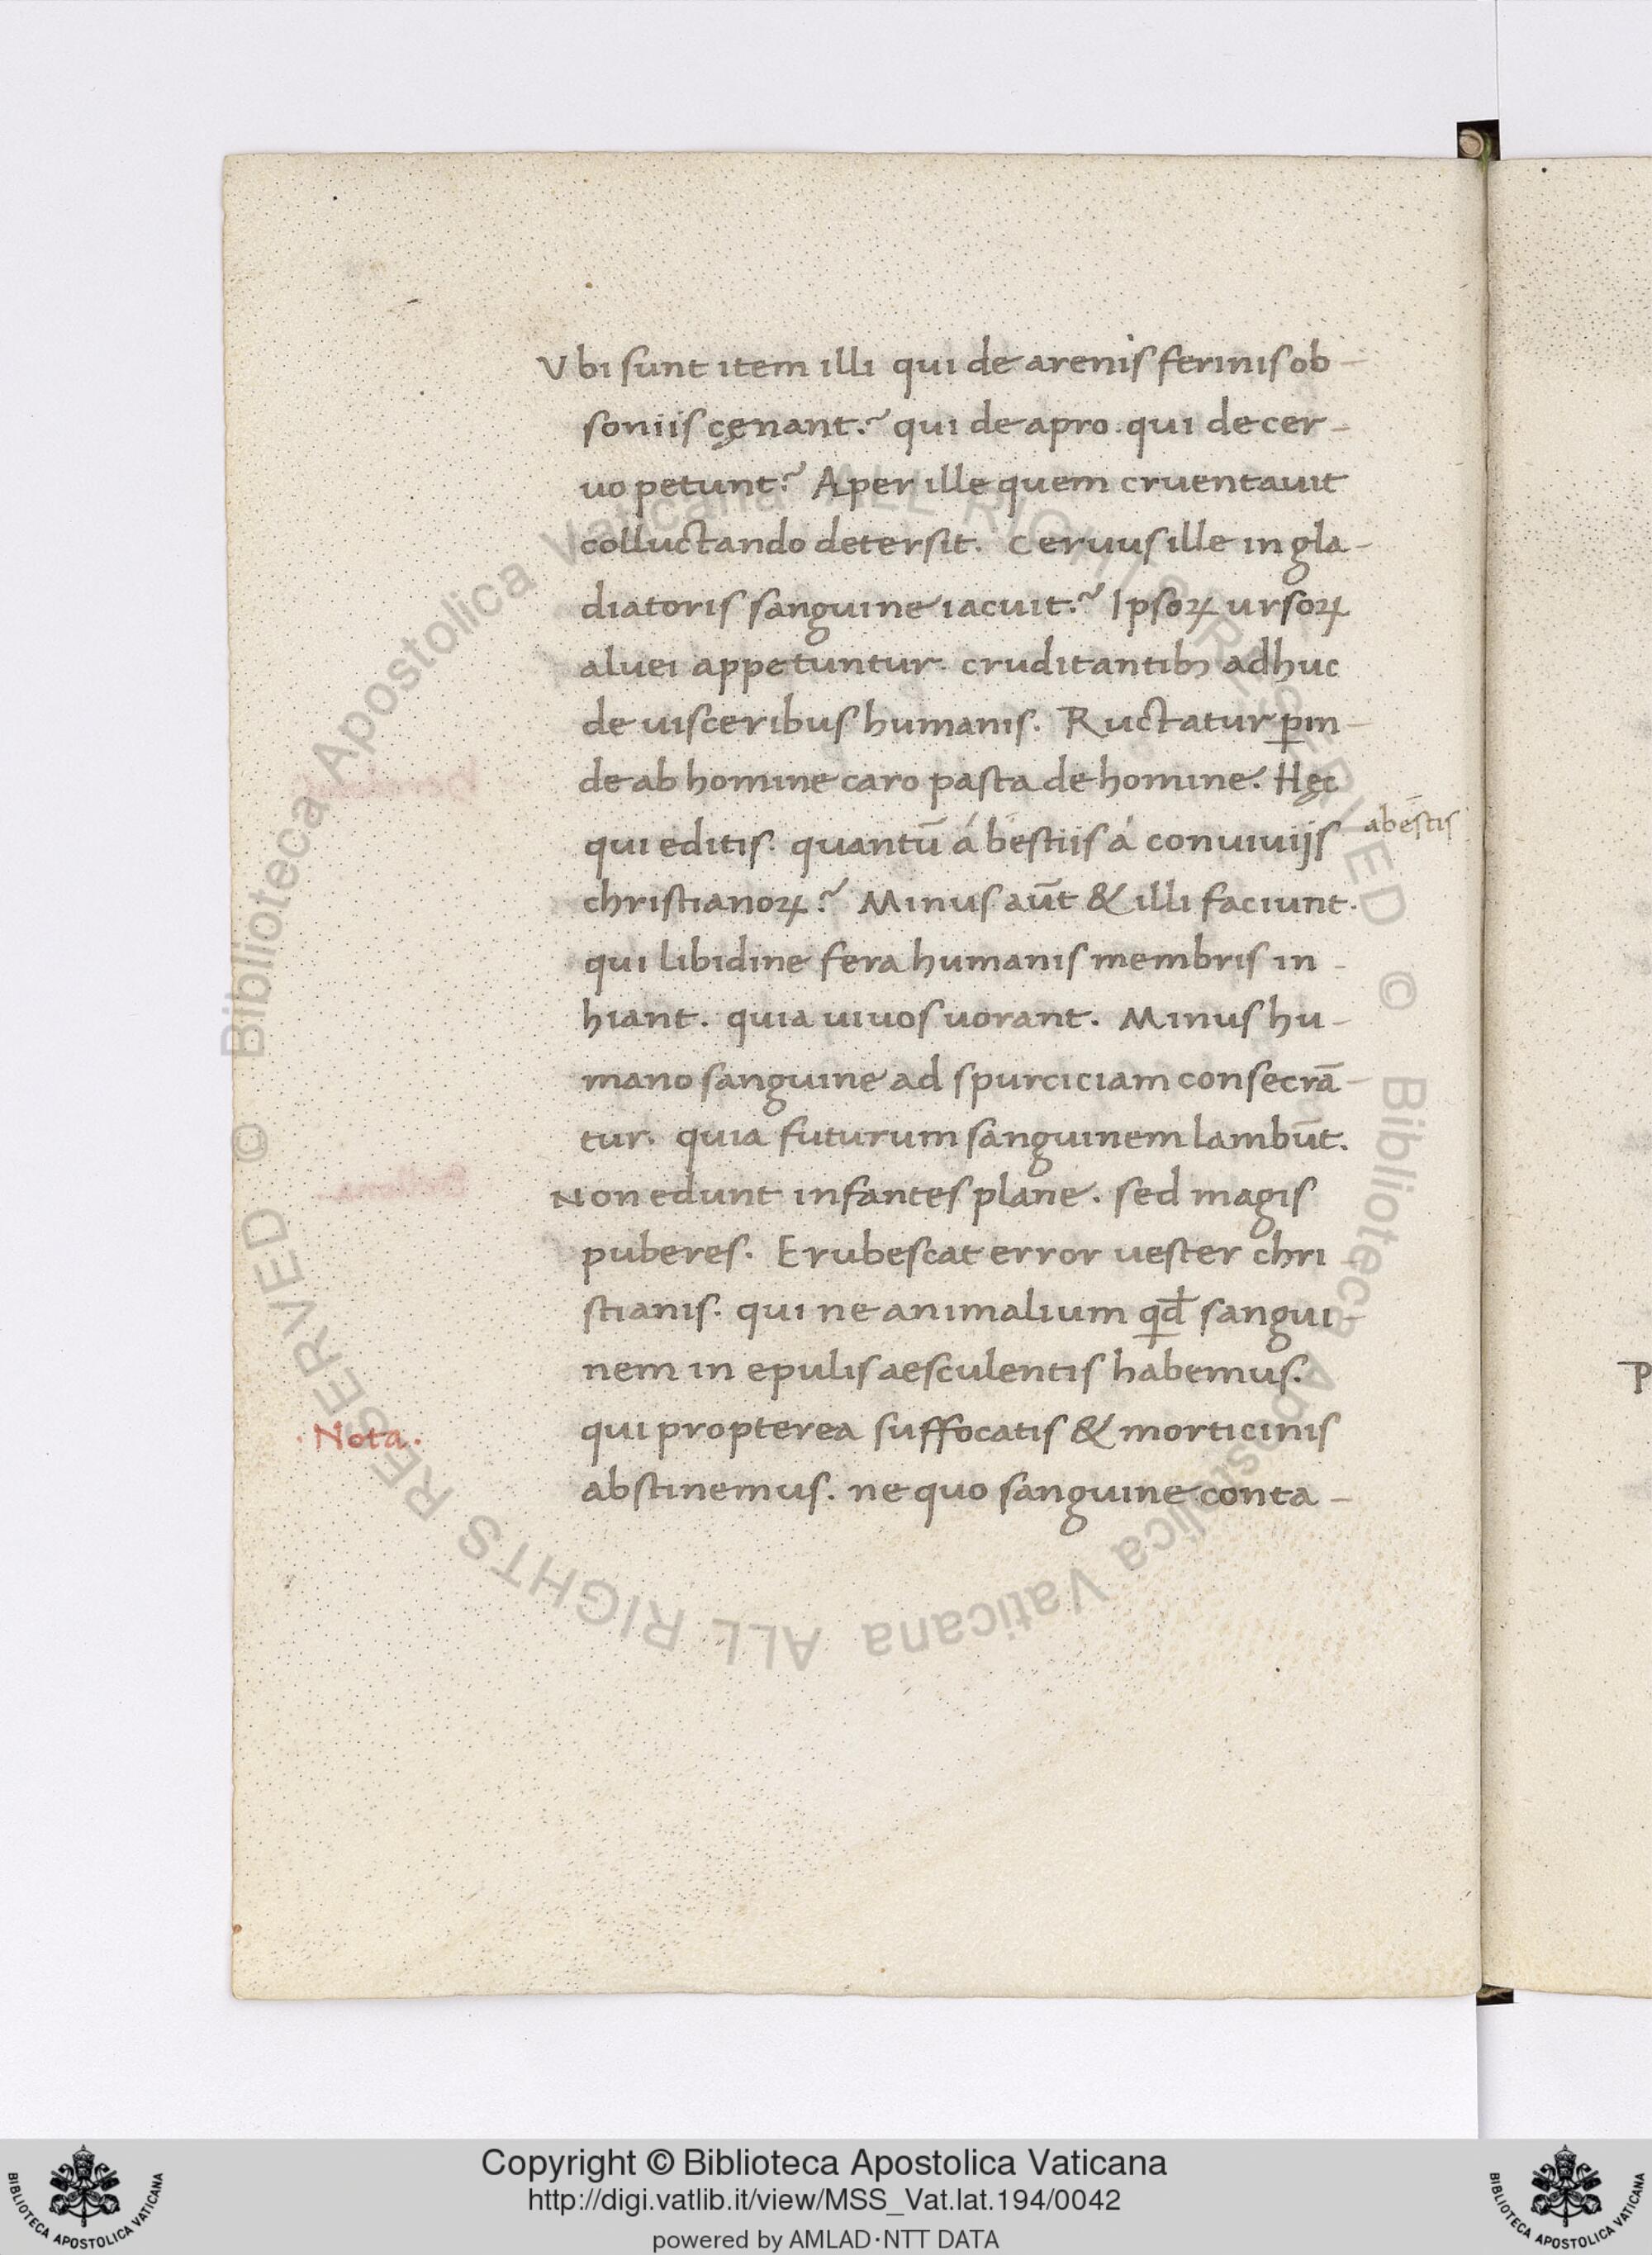 Vbi sunt item illi qui de arenis ferinis ob-
soniis cęnant? qui de apro. qui de cer-
uo petunt? Aper ille quem cruentauit
colluctando detersit. Ceruus ille in gla-
diatoris sanguine iacuit? Ipsoꝝ ursoꝝ
aluei appetuntur. cruditantibꝫ adhuc
de uisceribus humanis. Ructatur ꝑin-
de ab homine caro pasta de homine. Hęc
qui editis. quantū á bestiis á conuiuijs
abēstis
christianoꝝ? Minus aūt & illi faciunt.
qui libidine fera humanis membris in-
hiant. quia uiuos uorant. Minus hu-
mano sanguine ad spurciciam consecrā-
tur. quia futurum sanguinem lambūt.
Non edunt infantes plane. sed magis
puberes. Erubescat error uester chri
stianis. qui ne animalium qd̄ sangui-
nem in epulis aesculentis habemus.
qui propterea suffocatis & morticinis
.Nota.
abstinemus. ne quo sanguine conta-
P
© Biblioteca Apostolica Vaticana ALL RIGHTS RESERVED © Biblioteca Apostolica Vaticana ALL RIGHTS RESERVED
Copyright © Biblioteca Apostolica Vaticana
http://digi.vatlib.it/view/MSS_Vat.lat.194/0042
powered by AMLAD·NTT DATA
BIBLIOTECA APOSTOLICA VATICANA
BIBLIOTECA APOSTOLICA VATICANA